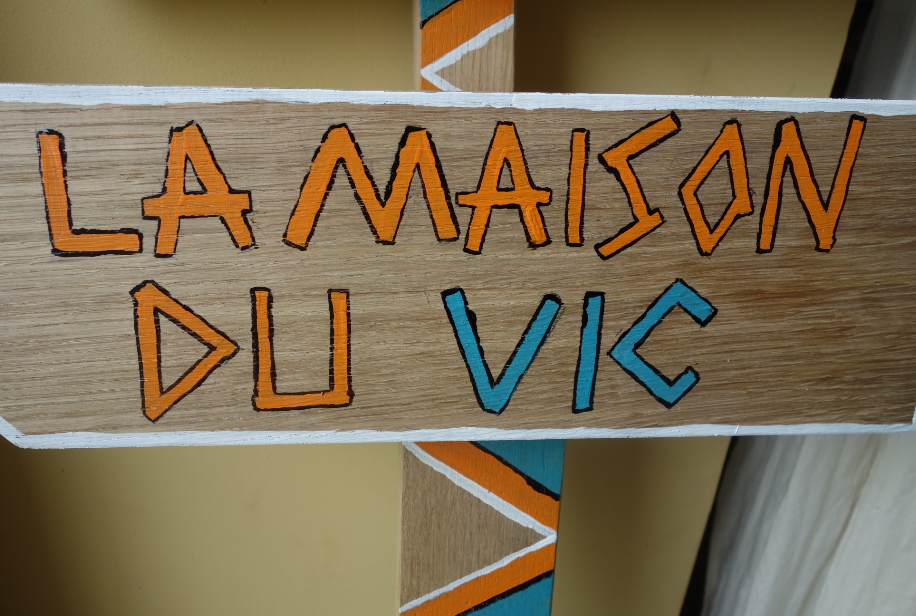 LA MAISON
DU VIC